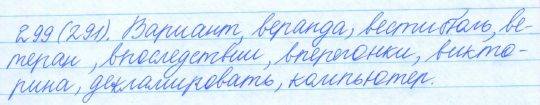 299 (291). Вариант, веранда, вестибюль, ве-
теран, впоследствии, вперегонки, викто-
рина, декламировать, компьютер.